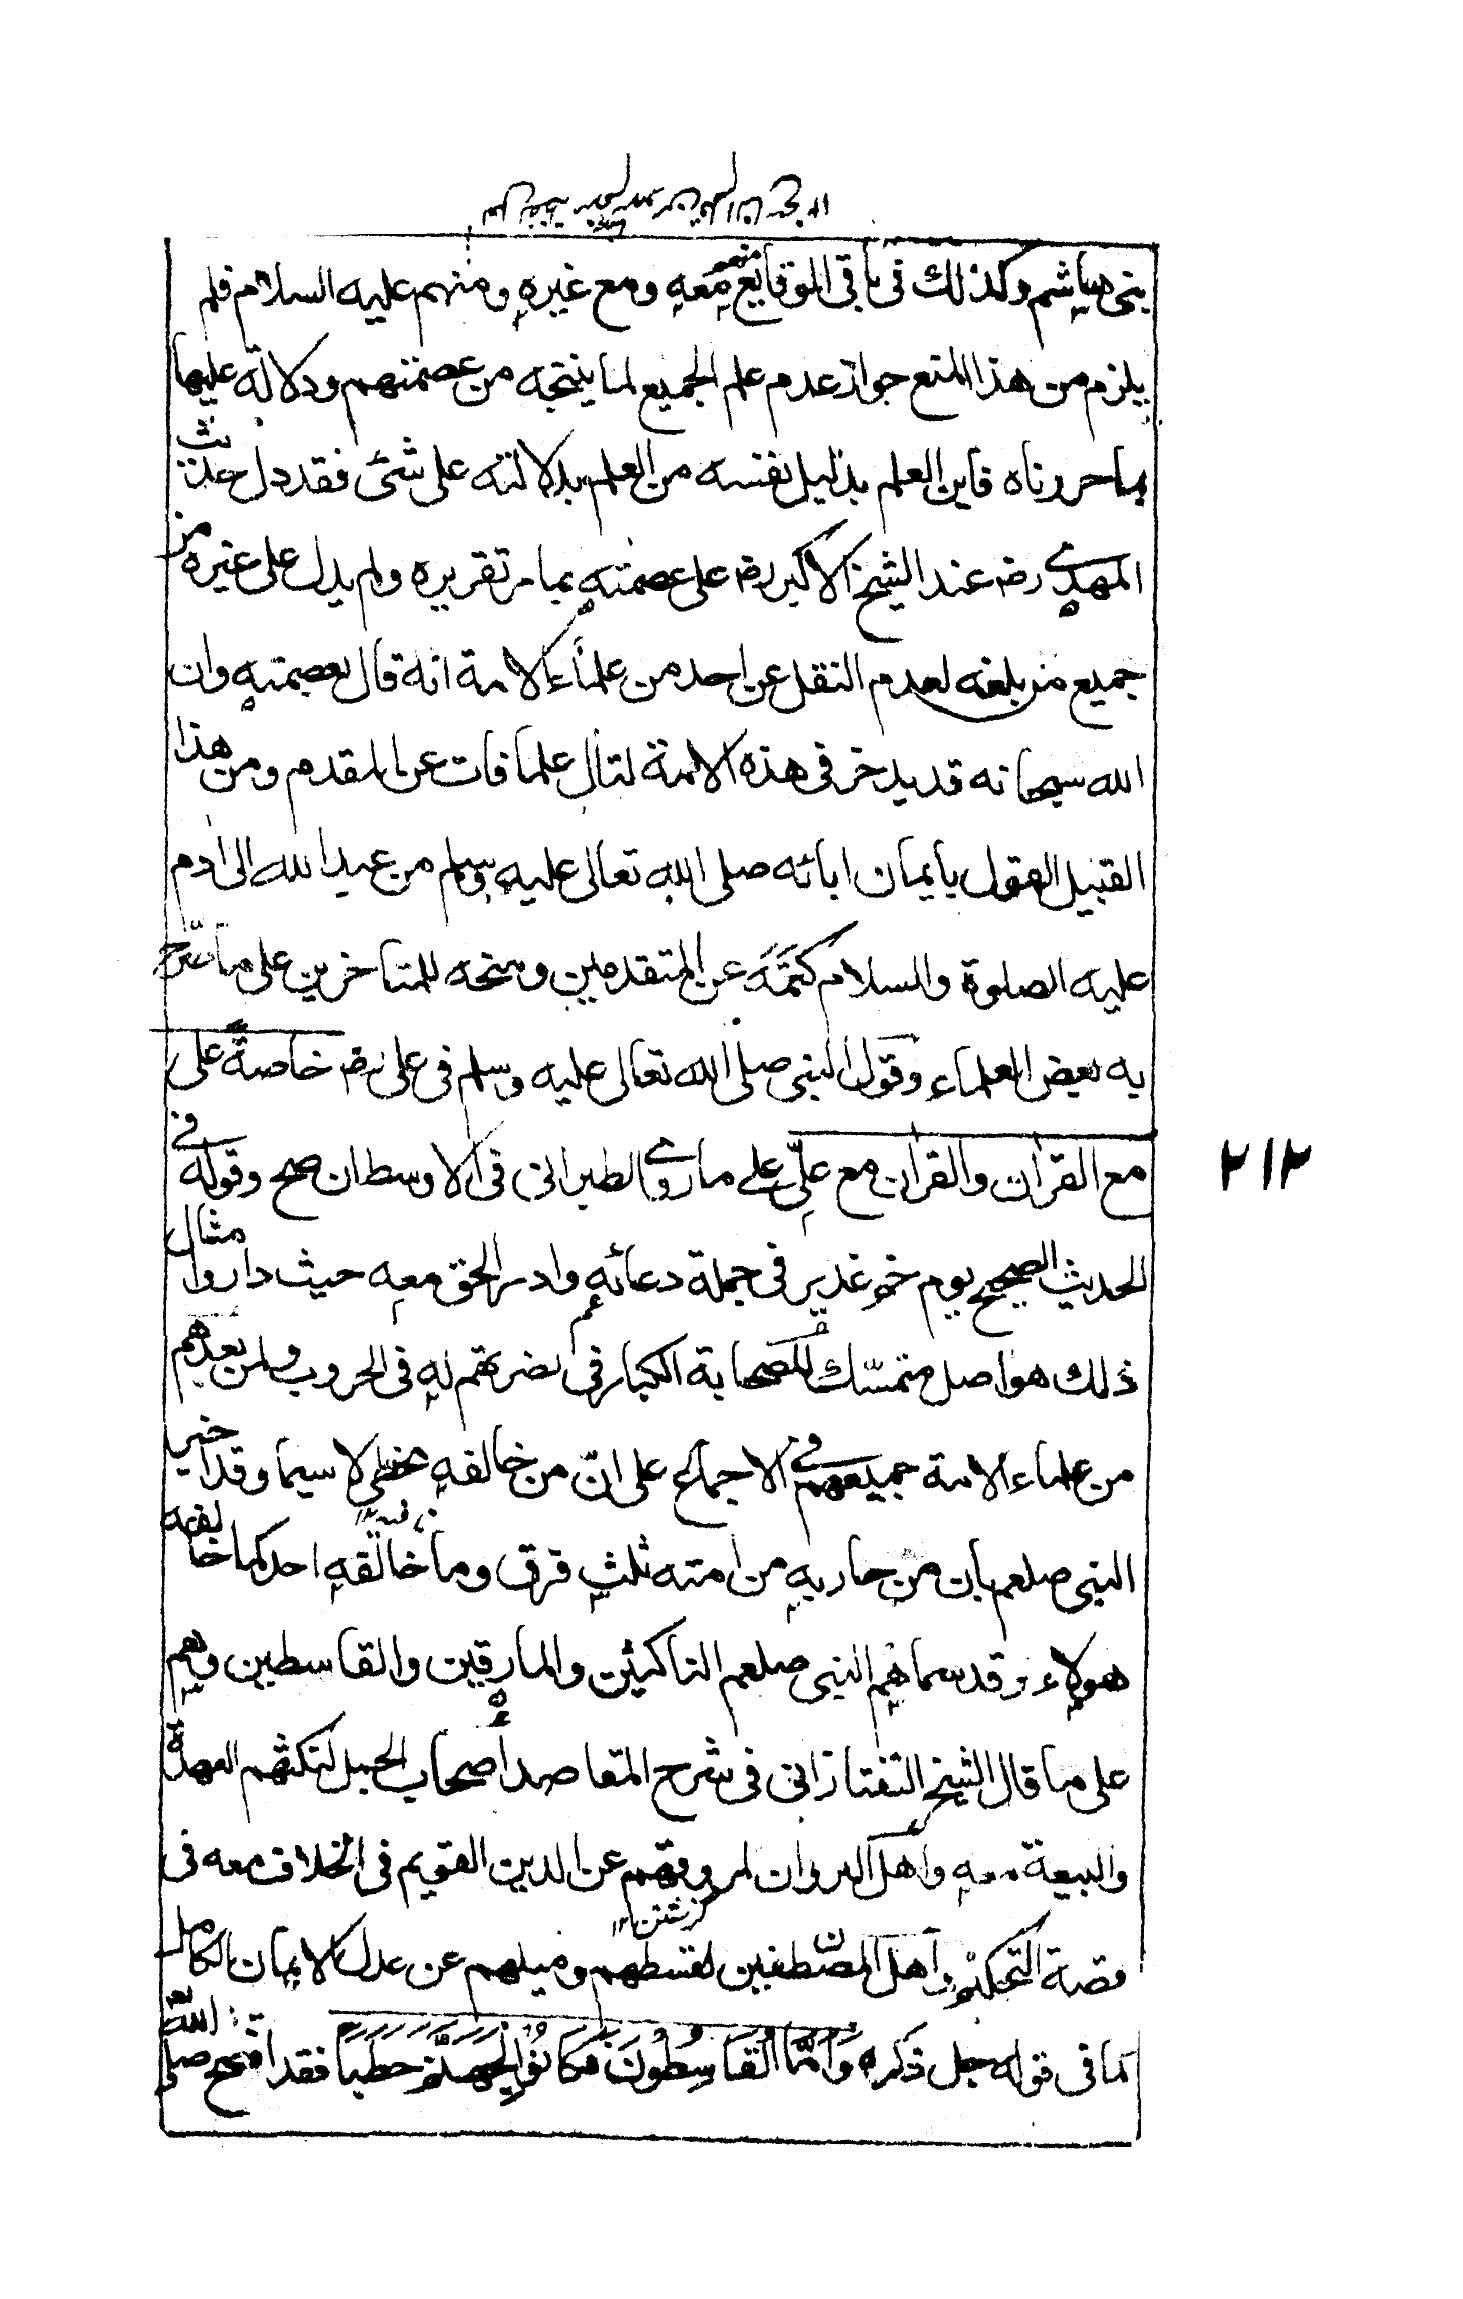 بنى هاشم وكذلك فى باقى الوقايع منهم معه ومع غيره ومنهم عليه السلام فلم
يلزم من هذا المنع جواز عدم علم الجميع لما ينتجه من عصمتهم ودلالته عليها
بما حررناه فاين العلم بدليل نفسه من العلم بدلالته على شئ فقد دل حديث
المهدى رض عند الشيخ الاكبر رض على عصمته بما مر تقريره ولم يدل على غيره من
جميع من بلغه لعدم النقل عن احد من علماء الامة انه قال بعصمته وان
الله سبحانه قد يدخر فى هذه الامة لتال علما فات عن المقدم ومن هذا
القبيل القول بايمان ابائه صلى الله تعالى عليه وسلم من عبد الله الى ادم
عليه الصلوة والسلام كتمه عن المتقدمين ومنحه للمتاخرين على ما صرح
به بعض العلماء وقول النبى صلى الله تعالى عليه وسلم فى على رض خاصة على
مع القران والقران مع على على ما روى الطبرانى فى الاوسط ان صح وقوله فى
الحديث الصحيح يوم خم غدير فى جملة دعائه وادر الحق معه حيث دار وامثال
ذلك هو اصل متمسك للصحابة الكبار فى نصرتهم له فى الحروب ولمن بعدهم
من علماء الامة جميعهم فى الاجماع على ان من خالفه مخطى لا سيما وقد اخبر
النبى صلعم بان من حاربه من امته ثلث فرق وما خالفه احد كما خالفه
هولاء وقد سماهم النبى صلعم الناكثين والمارقين والقاسطين وهم
على ما قال الشيخ التفتازانى فى شرح المقاصد اصحاب الجمل لنكثهم العهدة
والبيعة معه واهل النهروان لمروقهم عن الدين القويم فى الخلاف معه فى
قصة التحكيم واهل الصفين لقسطهم وميلهم عن عدل الايمان الكامل
كما فى قوله جل ذكره وَاَمَّا الْقَاسِطُونَ فَكَانُوا لِجَهَنَّمَ حَطَبًا فقد افصح صلى الله تع
٢١٢